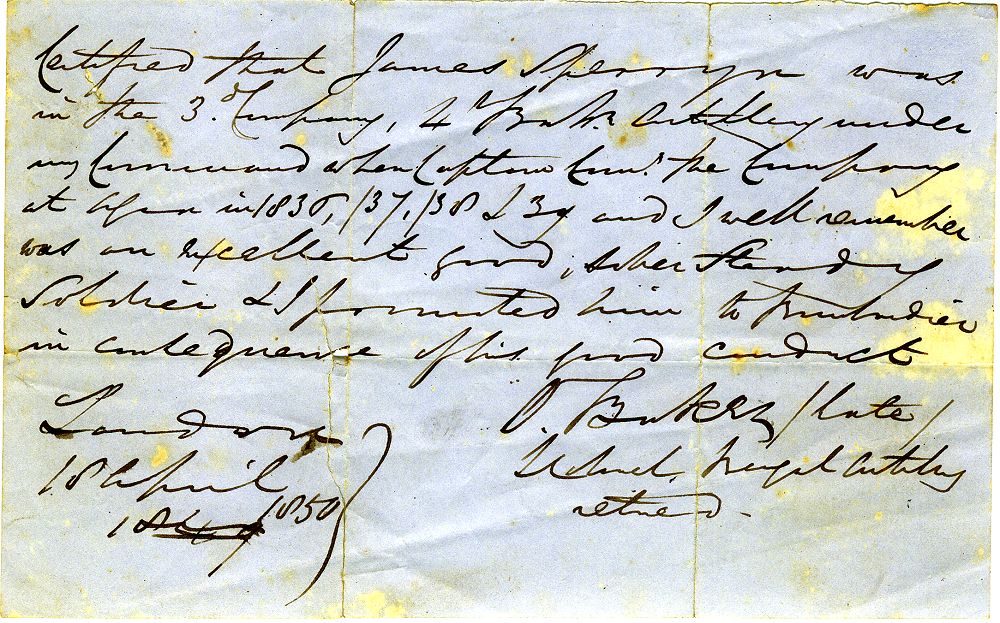 Certified that James Sperryn was
in the 3.d Company, 4th Batn. Artillery under
my Command when Captain Com.g the Company
at Agra in 1836, /37, /38 & 39 and I well remember
was an excellent good, sober steady
Soldier & I promoted him to Bombardier
in consequence of his good conduct
London
18 April
1849 1850
(late)
Bengal Artillery
retired -